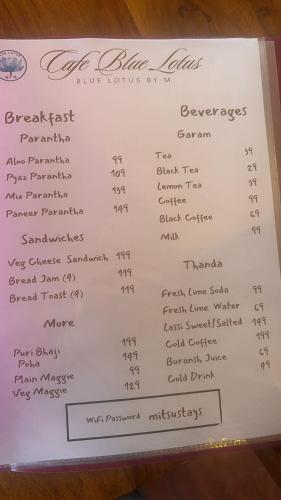 Cafe Blue Lotus
BLUE LOTUS BY M
Breakfast
Parantha
Aloo Parantha 99
Pyaz Parantha 109
Mix Parantha 139
Paneer Parantha 149
Sandwiches
Veg Cheese Sandwich 199
Bread Jam (4) 119
Bread Toast (4) 119
More
Puri Bhaji 199
Poha 149
Plain Maggie 99
Veg Maggie 129
Beverages
Garam
Tea 39
Black Tea 29
Lemon Tea 39
Coffee 99
Black Coffee 69
Milk 99
Thanda
Fresh Lime Soda 99
Fresh Lime Water 69
Lassi Sweet/Salted 149
Cold Coffee 199
Buransh Juice 69
Cold Drink 49
WiFi Password mitsustays